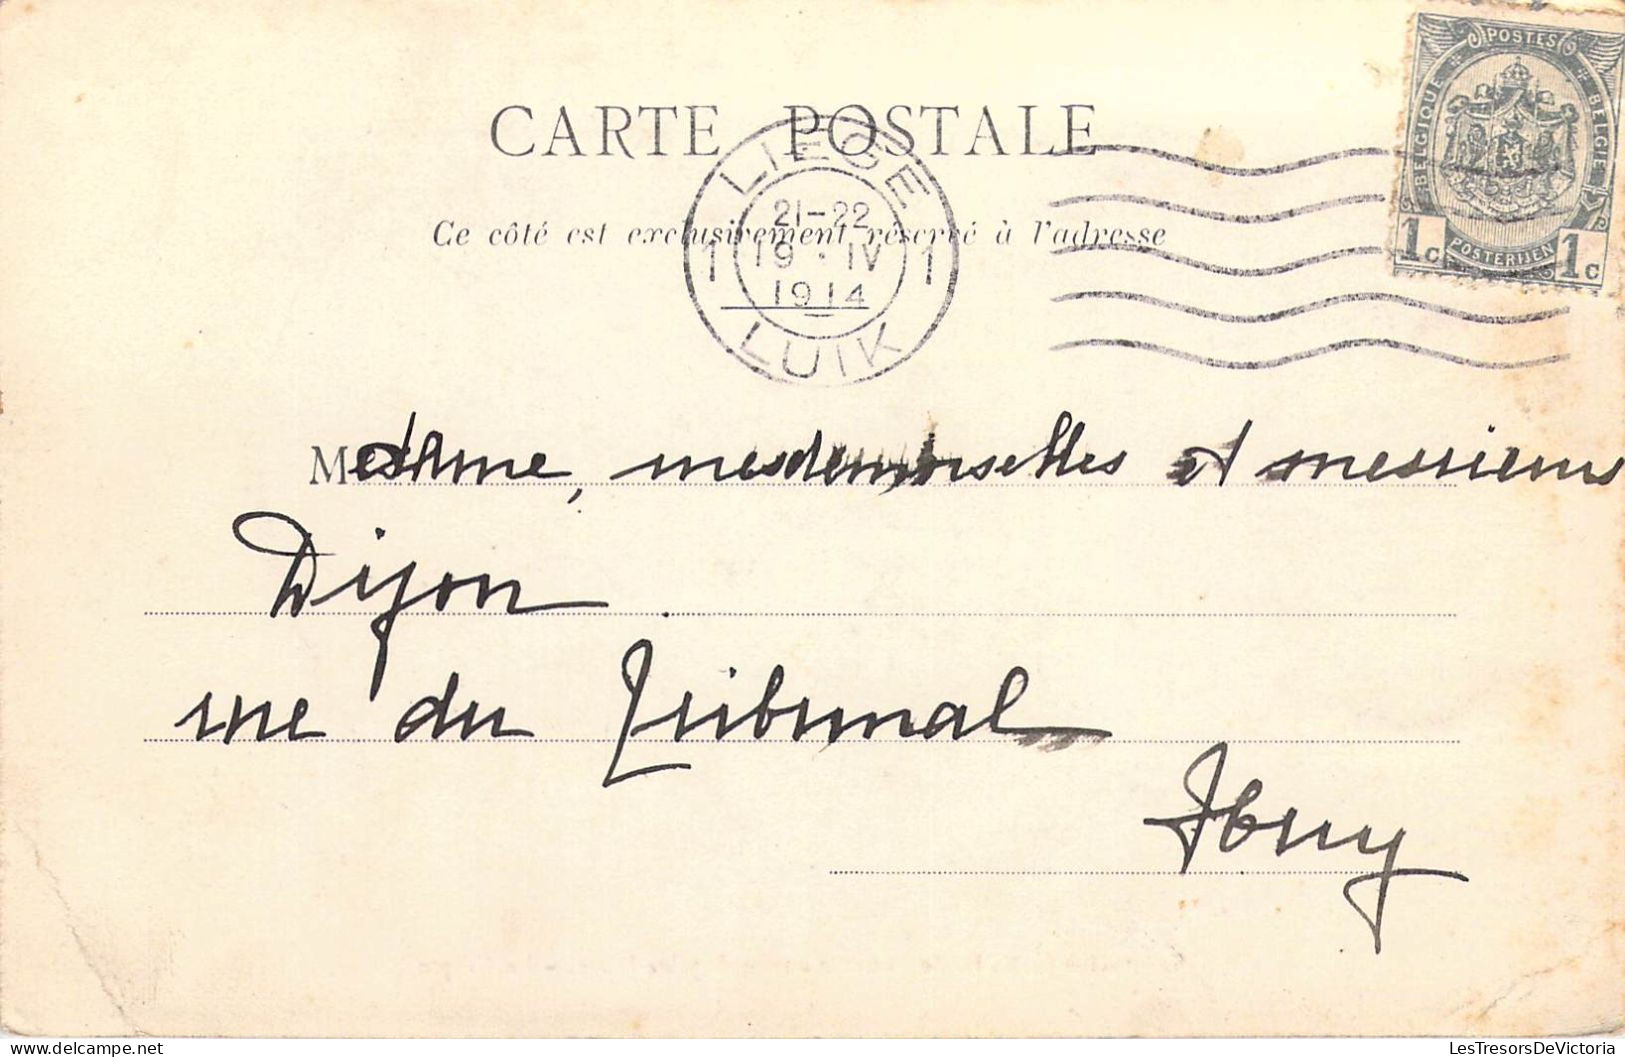 CARTE POSTALE
Ce côté est exclusivement réservé à l'adresse
LIEGE
21-22
1 19 · IV 1
1914
LUIK
POSTES
BELGIQUE BELGIE
1c POSTERIJEN 1c
Madame, mesdemoiselles et messieurs
Dijon
rue du Tribunal
Huy
LesTresorsDeVictoria